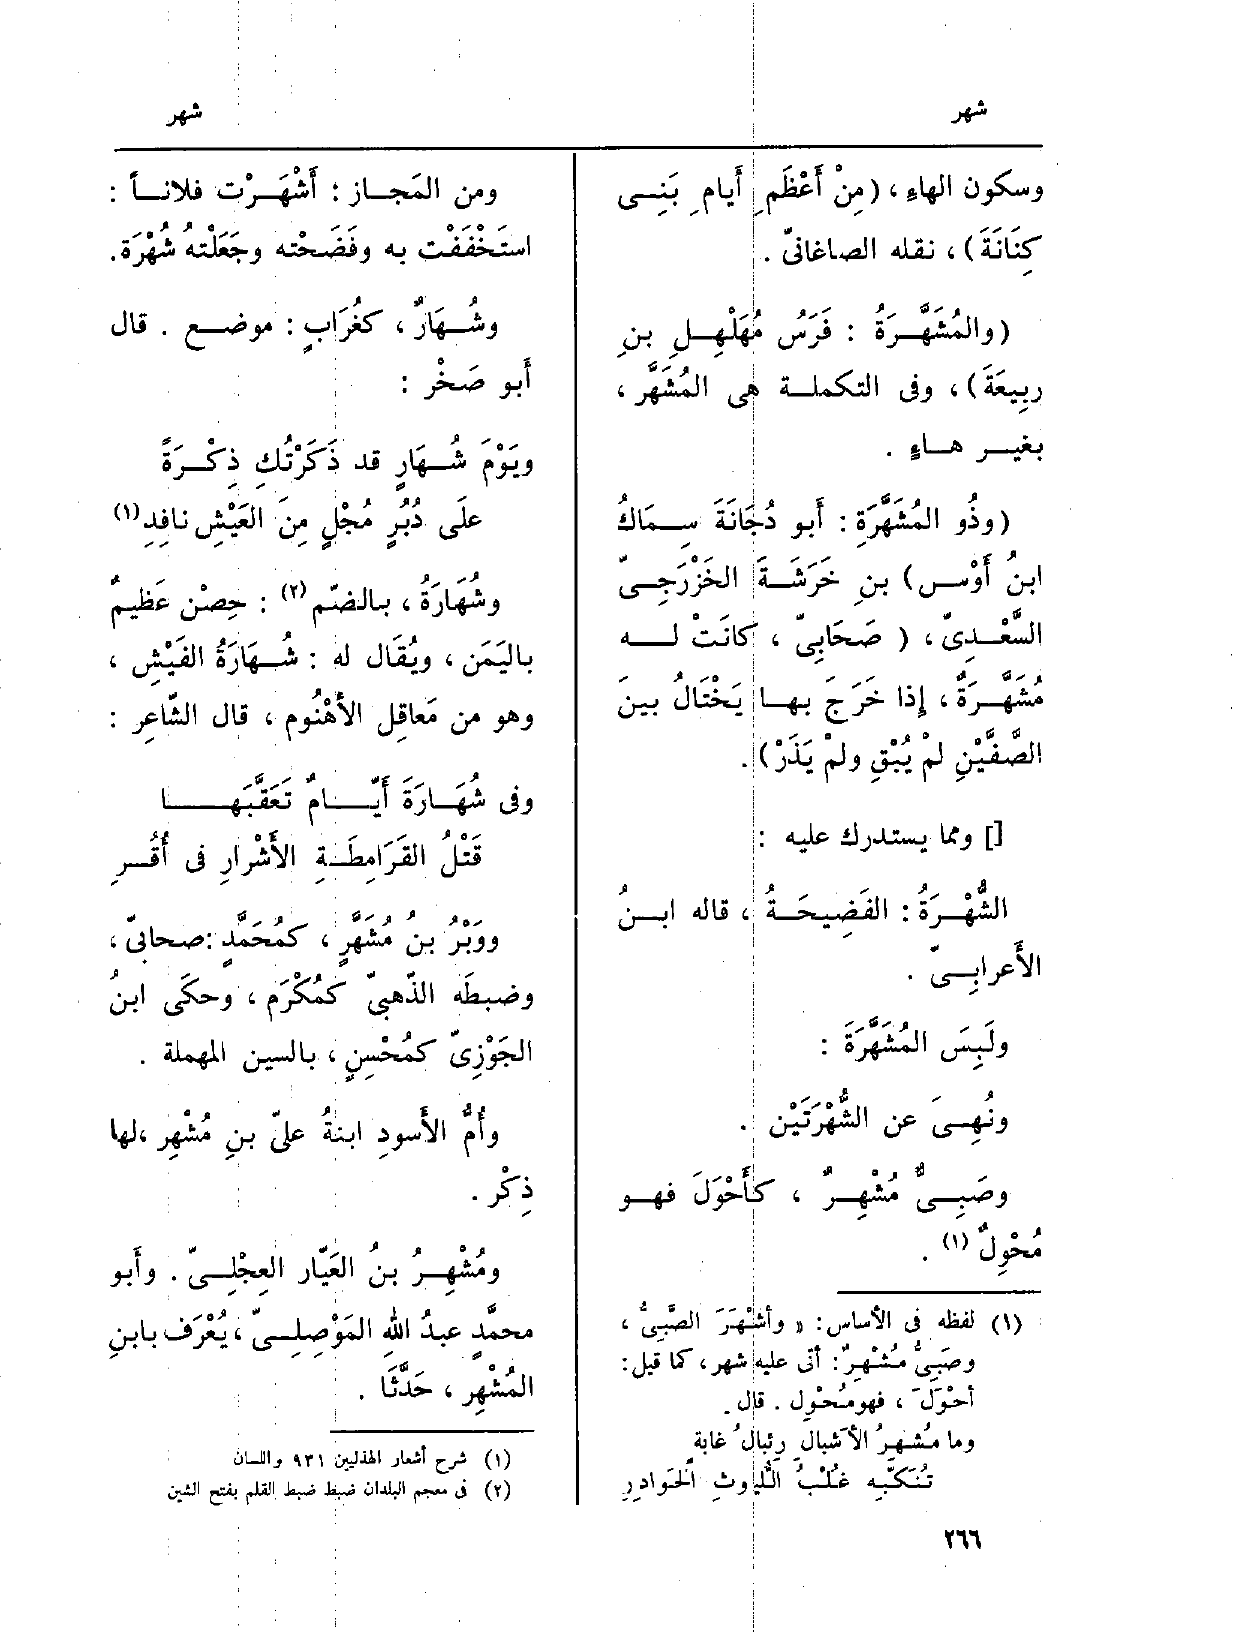 شهر
شهر
وسكون الهاءِ ، (مِنْ أَعْظَمِ أَيامِ بَنِـى
كِنَانَةَ) ، نقله الصاغانىّ .
(والمُشَهَّـرَةُ : فَرَسُ مُهَلْهِـلِ بنِ
ربِيعَةَ) ، وفى التكملـة هى المُشَهَّر ،
بغيـر هـاءٍ .
(وذُو المُشَهَّرَةِ : أَبو دُجَانَةَ سِـمَاكُ
ابنُ أَوْس) بنِ خَرَشَـةَ الخَزْرَجِـىّ
السَّعْـدِىّ ، ( صَحَابِىّ ، كانَتْ لـه
مُشَهَّـرَةٌ ، إِذا خَرَجَ بهـا يَخْتَالُ بينَ
الصَّفَّيْنِ لمْ يُبْقِ ولمْ يَذَرْ) .
[] ومما يستدرك عليه :
الشُّهْـرَةُ : الفَضِيحَـةُ ، قاله ابـنُ
الأَعرابِـىّ .
ولَبِسَ المُشَهَّرَةَ :
ونُهِـىَ عن الشُّهْرَتَيْن .
وصَبِـىٌّ مُشْهِـرٌ ، كأَحْوَلَ فهـو
مُحْوِلٌ (١) .
(١) لفظه فى الأساس : « وأشْهَرَ الصَّبِىُّ ،
وصَبِىٌّ مُشْهِرٌ : أتى عليه شهر ، كما قيل :
أحْوَلَ ، فهو مُحْوِل . قال .
وما مُشْهِرُ الأشبالِ رِئبالُ غابة
تُنَكّبِه غُلْبُ اللُّيوثِ الخَوادِرِ
ومن المَجـاز : أَشْهَـرْت فلانـاً :
استَخْفَفْت به وفَضَحْته وجَعَلْتهُ شُهْرَة .
وشُـهَارٌ ، كغُرَابٍ : موضـع . قال
أَبو صَخْر :
ويَوْمَ شُـهَارٍ قد ذَكَرْتُكِ ذِكْـرَةً
علَى دُبُرٍ مُجْلٍ مِنَ العَيْشِ نافِدِ (١)
وشُهَارَةُ ، بـالضّم (٢) : حِصْن عَظِيمٌ
باليَمَن ، ويُقَال له : شُـهَارَةُ الفَيْش ،
وهو من مَعاقِل الأَهْنُوم ، قال الشّاعِر :
وفى شُهَـارَةَ أَيّـامٌ تَعَقَّبَهـا
قَتْلُ القَرَامِطَـةِ الأَشْرارِ فى أُقُـرِ
ووَبَرُ بـن مُشَهَّرٍ ، كمُحَمَّدٍ : صحابىّ ،
وضبطَه الذّهبىّ كمُكْرَم ، وحكَى ابنُ
الجَوْزِىّ كمُحْسِنٍ ، بالسين المهملة .
وأُمُّ الأَسودِ ابنةُ علىّ بنِ مُشْهِرٍ ، لها
ذِكْر .
ومُشْهِـرُ بنُ العَيّار العِجْلِـىّ . وأَبو
محمَّدٍ عبدُ اللهِ المَوْصِلِـىّ ، يُعْرَف بابنِ
المُشْهِر ، حَدَّثَا .
(١) شرح أشعار الهذليين ٩٣١ واللسان
(٢) فى معجم البلدان ضبط ضبط القلم بفتح الشين
٢٦٦